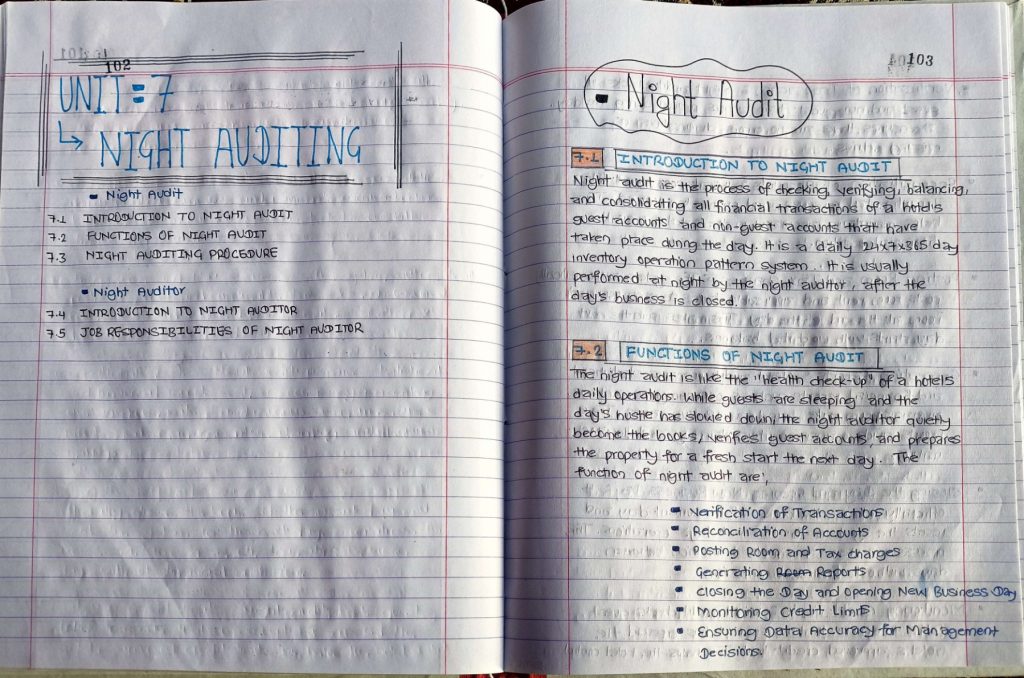 102
UNIT = 7
↳ NIGHT AUDITING
▪ Night Audit
7.1 INTRODUCTION TO NIGHT AUDIT
7.2 FUNCTIONS OF NIGHT AUDIT
7.3 NIGHT AUDITING PROCEDURE
▪ Night Auditor
7.4 INTRODUCTION TO NIGHT AUDITOR
7.5 JOB RESPONSIBILITIES OF NIGHT AUDITOR
103
▪ Night Audit
7.1 INTRODUCTION TO NIGHT AUDIT
Night audit is the process of checking, verifying, balancing,
and consolidating all financial transactions of a hotel's
guest accounts and non-guest accounts that have
taken place during the day. It is a daily 24x7x365 day
inventory operation pattern system. It is usually
performed at night by the night auditor, after the
day's business is closed.
7.2 FUNCTIONS OF NIGHT AUDIT
The night audit is like the "health check-up" of a hotel's
daily operations. While guests are sleeping and the
day's hustle has slowed down, the night auditor quietly
become the books, verifies guest accounts, and prepares
the property for a fresh start the next day. The
function of night audit are;
▪ Verification of Transactions
▪ Reconciliation of Accounts
▪ Posting Room and Tax charges
▪ Generating Reports
▪ Closing the Day and opening New Business Day
▪ Monitoring Credit Limits
▪ Ensuring Data Accuracy for Management
Decisions.